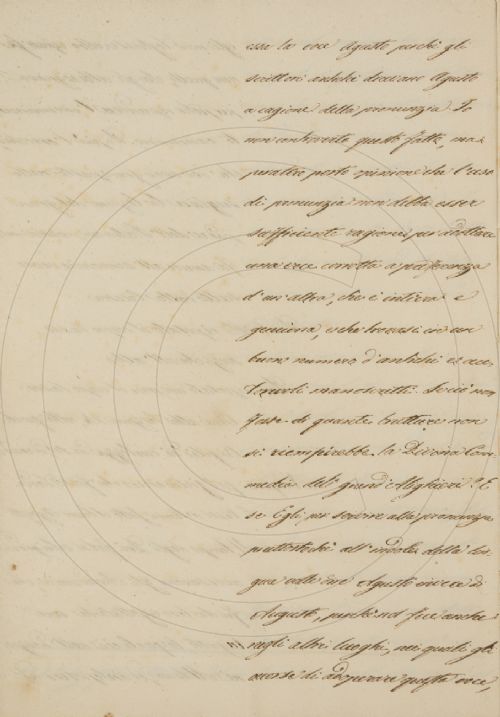 essa la voce Agusto perchè gli
scrittori antichi dicevano Agusto
a cagione della pronunzia. Io
non controverto questi fatti, ma
peraltro porto opinione che l'uso
di pronunzia non debba esser
sufficiente ragione per adottare
una voce corrotta a preferenza
d'un'altra, che è intiera e
genuina, e che trovasi in un
buon numero d'antichi ed accet
tevoli manoscritti. Se ciò non
fosse di quante brutture non
si riempirebbe la Divina Com
media del grand'Alighieri? E
se Egli, per servire alla pronunzia
piuttostochè all'indole della lin
gua volle dire Agusto invece di
Augusto, perchè nol fece anche
negli altri luoghi, nei quali gli
avvenne di adoperare questa voce,